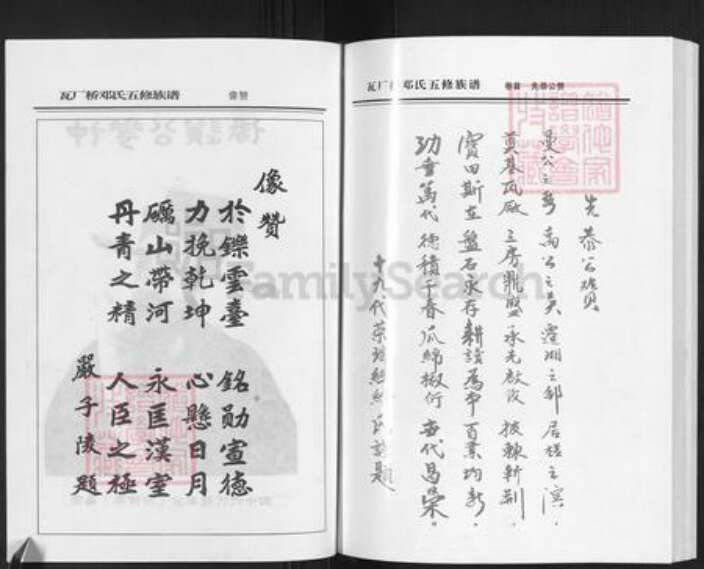 瓦厂桥邓氏五修族谱 像赞
像赞
於鑠雲臺 銘勛宣德
力挽乾坤 心懸日月
礪山帶河 永匡漢室
丹青之精 人臣之極
嚴子陵題
瓦厂 邓氏五修族谱 卷首 先恭公赞
先恭公贊
曼公之裔 禹公之 之邨 居 之濱
奠基瓦厰 三房鼎盛 承先啟後 披棘斬荆
寶田斯在 盤石永存 耕讀為本 百業均新
功垂萬代 德積千春 瓜綿椒衍 世代昌榮
十九代 題
FamilySearch